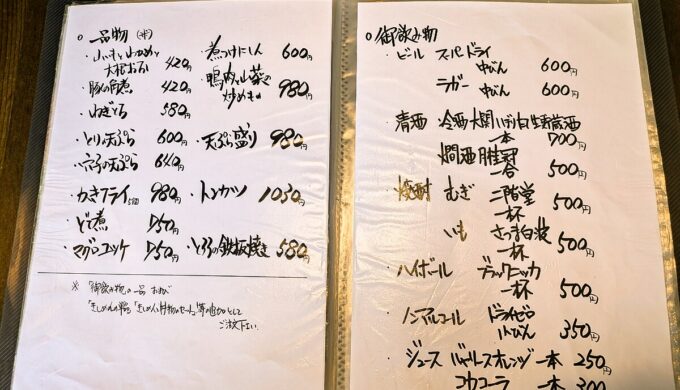 ○ 一品物 (冷)
・山いもとわかめと
大根おろし 420円
・豚の角煮 420円
・ねぎとろ 580円
・とり天ぷら 600円
・穴子の天ぷら 640円
・かきフライ 980円
・どて煮 750円
・マグロユッケ 750円
・煮つけにしん 600円
・鴨肉と山菜の
炒めもの 980円
・天ぷら盛り 980円
・トンカツ 1030円
・とろろの鉄板焼き 580円
※ 御飲み物の一品
ご注文下さい
○ 御飲み物
・ビール スーパードライ
中びん 600円
ラガー 中びん 600円
・清酒 冷酒 大関 生貯蔵酒
一本 700円
燗酒 月桂冠
一合 500円
・焼酎 むぎ 二階堂
一杯 500円
いも さつま白波
一杯 500円
・ハイボール ブラックニッカ
一杯 500円
・ノンアルコール ドライゼロ
小びん 350円
・ジュース バャリースオレンジ 一本 250円
コカコーラ 一本 300